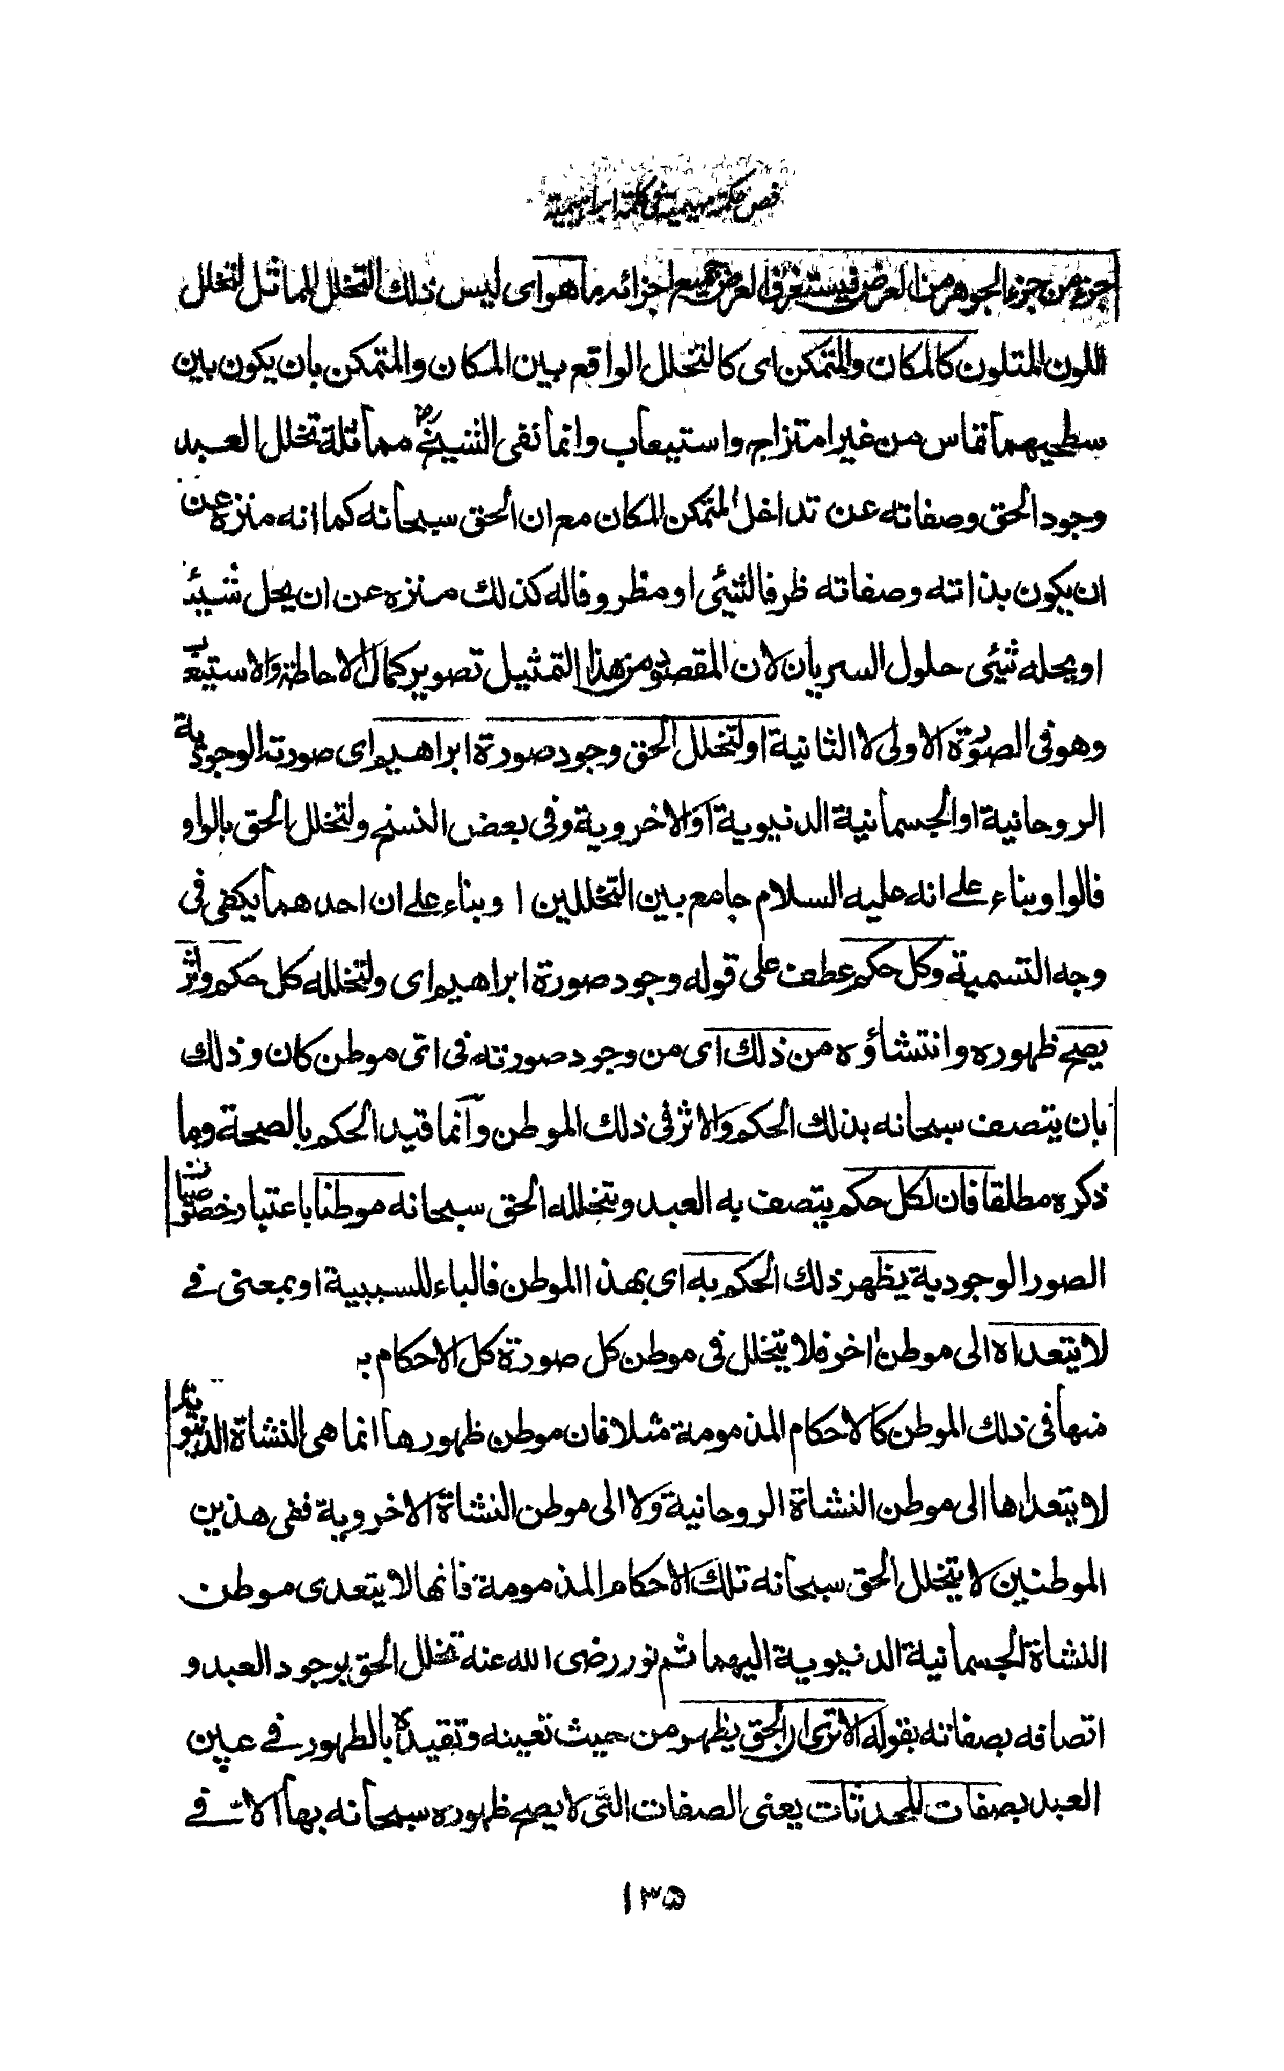 فص حكمة مهيمية فى كلمة ابراهيمية
جزء من جزء الجوهر من العرض فيستغرق العرض جميع اجزائه ما هو اى ليس ذلك التخلل المماثل لتخلل
اللون المتلون كالمكان والمتمكن اى كالتخلل الواقع بين المكان والمتمكن بان يكون بين
سطحيهما تماس من غير امتزاج واستيعاب وانما نفى الشيخ رض مماثلة تخلل العبد
وجود الحق وصفاته عن تداخل المتمكن للمكان مع ان الحق سبحانه كما انه منزه عن
ان يكون بذاته وصفاته ظرفا لشئى او مظروفا له كذلك منزه عن ان يحل شيئا
او يحله شئى حلول السريان لان المقصود من هذا التمثيل تصوير كمال الاحاطة والاستيعاب
وهو فى الصورة الاولى لا الثانية او لتخلل الحق وجود صورة ابراهيم اى صورته الوجودية
الروحانية او الجسمانية الدنيوية او الاخروية وفى بعض النسخ ولتخلل الحق بالواو
فالواو بناء على انه عليه السلام جامع بين التخللين ا وبناء على ان احدهما يكفى فى
وجه التسمية وكل حكم عطف على قوله وجود صورة ابراهيم اى ولتخلله كل حكم واثر
يصح ظهوره وانتشاؤه من ذلك اى من وجود صورته فى اتى موطن كان وذلك
بان يتصف سبحانه بذلك الحكم والاثر فى ذلك الموطن وانما قيد الحكم بالصحة وما
ذكره مطلقا فان لكل حكم يتصف به العبد ويتخلله الحق سبحانه موطنا باعتبار خصوصيات
الصور الوجودية يظهر ذلك الحكم به اى بهذا الموطن فالباء للسببية او بمعنى فى
لا يتعداه الى موطن اخر فلا يتخلل فى موطن كل صورة كل الاحكام بـ
منها فى ذلك الموطن كالاحكام المذمومة مثلا فان موطن ظهورها انما هى النشاة الدنيوية
لا يتعداها الى موطن النشاة الروحانية ولا الى موطن النشاة الاخروية ففى هذين
الموطنين لا يتخلل الحق سبحانه تلك الاحكام المذمومة فانها لا يتعدى موطن
النشاة الجسمانية الدنيوية اليهما ثم نور رضى الله عنه تخلل الحق بوجود العبد و
اتصافه بصفاته بقوله الا ترى ان الحق يظهر من حيث تعينه وتقيده بالظهور فى عين
العبد بصفات المحدثات يعنى الصفات التى لا يصح ظهوره سبحانه بها الا فى
١٣٥